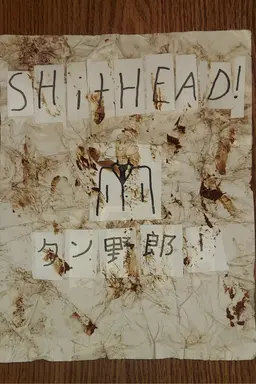 SHitHEAD!
タン野郎!